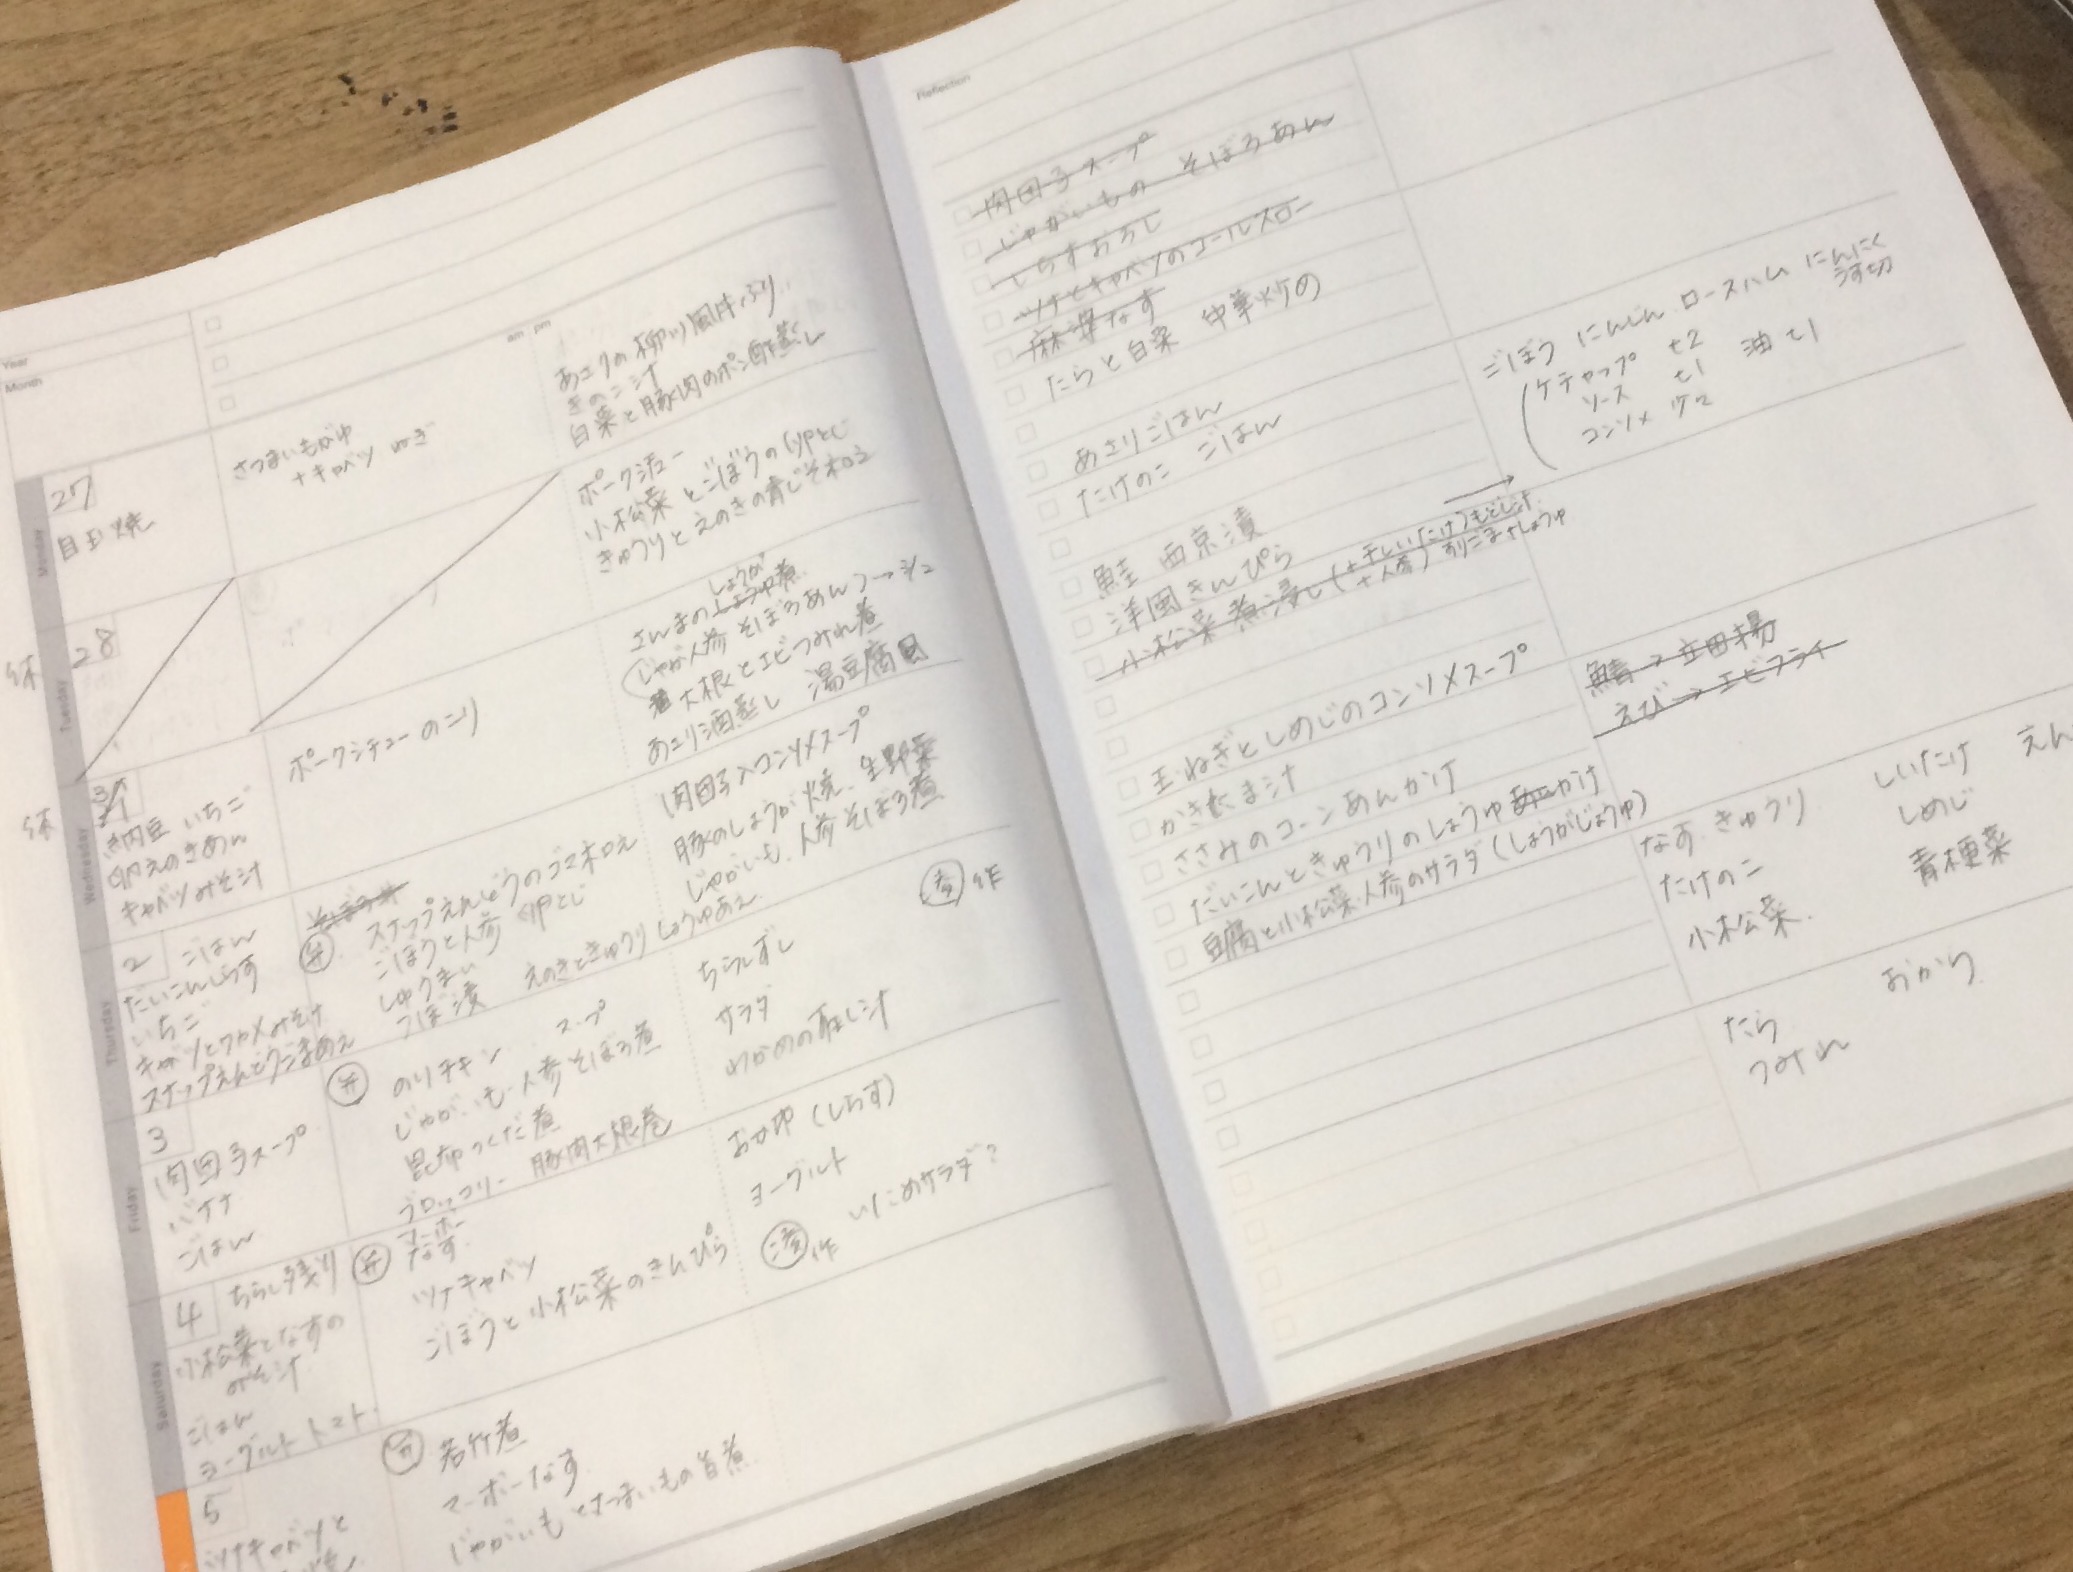 Year
Month
am pm
Monday
27
目玉焼
さつまいもがゆ
+キャベツ ねぎ
あさりの柳川風
きのこ汁
白菜と豚肉のポン酢蒸し
Tuesday
28
休
ポークシチュー
小松菜とごぼうの卵とじ
きゅうりとえのきの青じそ和え
Wednesday
休
3/1
納豆 いちご
卵えのきあん
キャベツみそ汁
ポークシチューのこり
しょうが
さんまのしょうゆ煮
じゃが人参 そぼろあん
大根とエビつみれ煮
あさり酒蒸し 湯豆腐
Thursday
2 ごはん
だいこんしらす
いちご
キャベツとワカメみそ汁
スナップえんどうごまあえ
弁 スナップえんどうのゴマ和え
ごぼうと人参 卵とじ
しゅうまい
つぼ漬 えのきときゅうり しょうゆあえ
肉団子入コンソメスープ
豚のしょうが焼、生野菜
じゃがいも、人参 そぼろ煮
Friday
3
肉団子スープ
バナナ
ごはん
弁 のりチキン スープ
じゃがいも・人参 そぼろ煮
昆布つくだ煮
ブロッコリー 豚肉大根巻
ちらしずし
サラダ
わかめのすまし汁
作
Saturday
4 ちらし残り
小松菜となすの
みそ汁
ごはん
ヨーグルト トマト
弁 マーボー
なす
ツナキャベツ
ごぼうと小松菜のきんぴら
おかゆ(しらす)
ヨーグルト
作 いためサラダ?
5
ツナキャベツと
弁 若竹煮
マーボーなす
じゃがいもとさつまいもの旨煮
Reflection
肉団子スープ
じゃがいもの そぼろあん
しらすおろし
ツナとキャベツのコールスロー
麻婆なす
たらと白菜 中華炒め
あさりごはん
たけのこ ごはん
鮭 西京漬
洋風きんぴら
小松菜煮浸し(+干ししいたけ)もどし汁
+人参) すりごま+しょうゆ
玉ねぎとしめじのコンソメスープ
かきたま汁
ささみのコーンあんかけ
だいこんときゅうりのしょうゆかけ
豆腐と小松菜・人参のサラダ(しょうがじょうゆ)
ごぼう にんじん ロースハム にんにく
うす切
ケチャップ t2 油 t1
ソース t1
コンソメ
鯖→立田揚
えび→エビフライ
なす、きゅうり しいたけ えん
たけのこ しめじ
小松菜 青梗菜
たら おから
つみれ